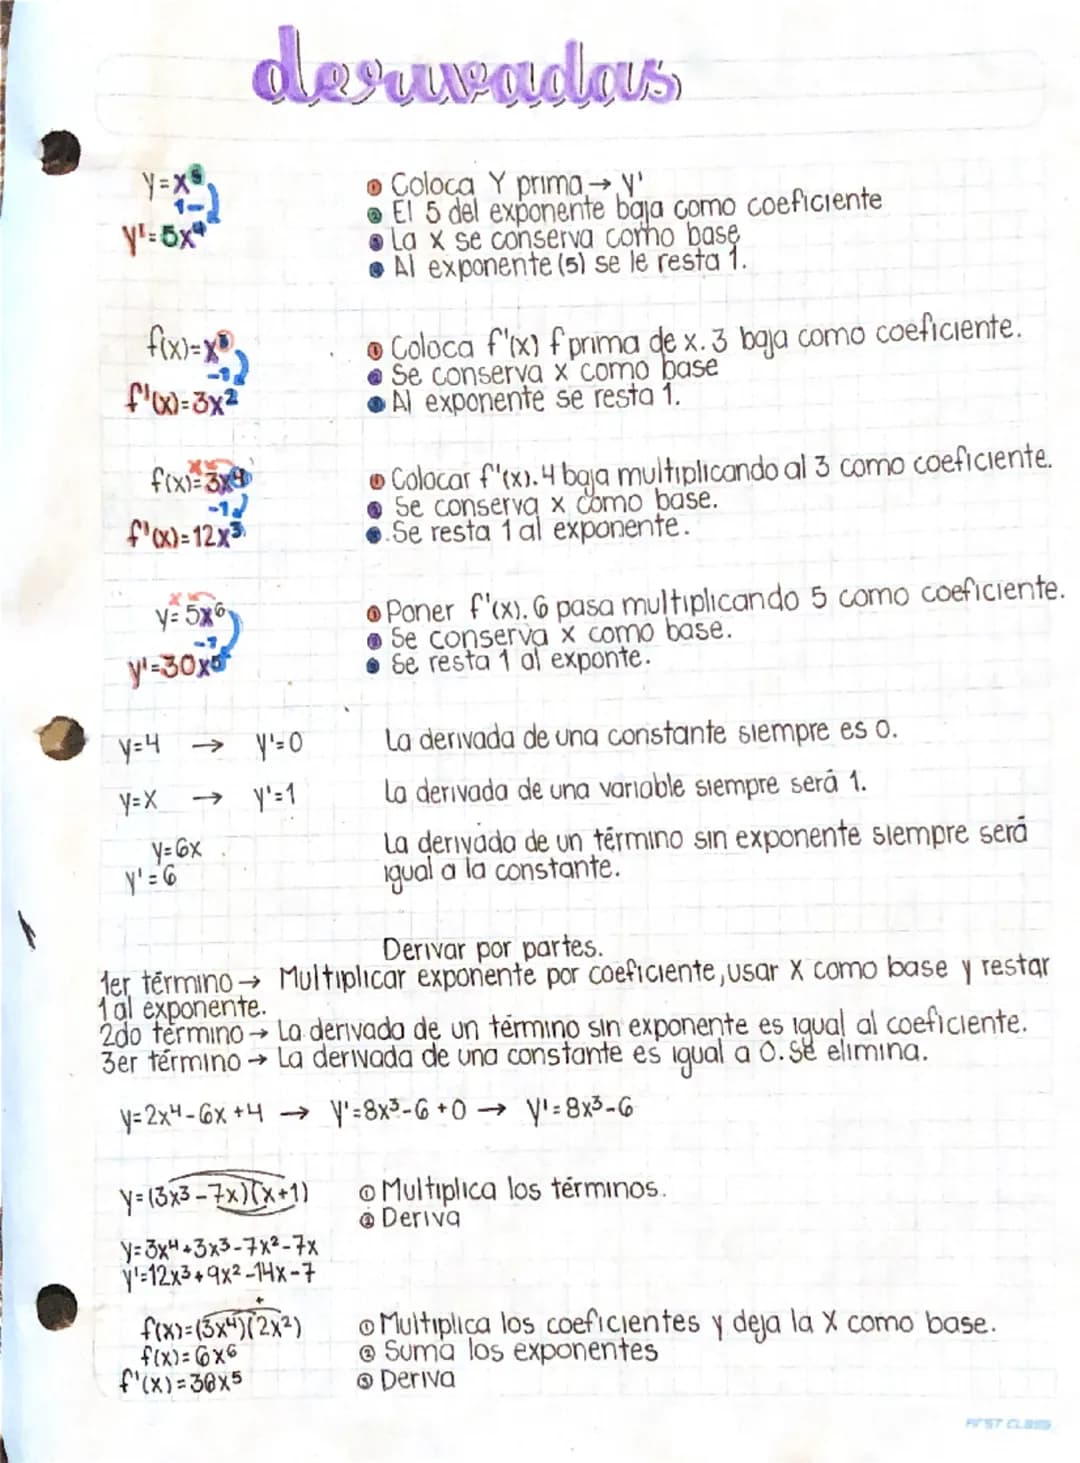 derivadas
y=x⁵
1-
y'=5x⁴
① Coloca Y prima → y'
② El 5 del exponente baja como coeficiente
③ La x se conserva como base
④ Al exponente (5) se le resta 1.
f(x)=x³
-1
f'(x)=3x²
① Coloca f'(x) f prima de x. 3 baja como coeficiente.
② Se conserva x como base
③ Al exponente se resta 1.
x
f(x)=3x⁴
-1
f'(x)=12x³
① Colocar f'(x). 4 baja multiplicando al 3 como coeficiente.
② Se conserva x como base.
③ Se resta 1 al exponente.
x
y=5x⁶
-1
y'=30x⁵
① Poner f'(x). 6 pasa multiplicando 5 como coeficiente.
② Se conserva x como base.
③ Se resta 1 al exponte.
y=4 → y'=0 La derivada de una constante siempre es 0.
y=x → y'=1 La derivada de una variable siempre será 1.
y=6x La derivada de un término sin exponente siempre será
y'=6 igual a la constante.
Derivar por partes.
1er término → Multiplicar exponente por coeficiente, usar X como base y restar
1 al exponente.
2do término → La derivada de un término sin exponente es igual al coeficiente.
3er término → La derivada de una constante es igual a 0. Se elimina.
y=2x⁴-6x+4 → y'=8x³-6+0 → y'=8x³-6
y=(3x³-7x)(x+1) ① Multiplica los términos.
② Deriva
y=3x⁴+3x³-7x²-7x
y'=12x³+9x²-14x-7
+
f(x)=(3x⁴)(2x²) ① Multiplica los coeficientes y deja la X como base.
f(x)=6x⁶ ② Suma los exponentes
f'(x)=36x⁵ ③ Deriva
FIRST CLASS